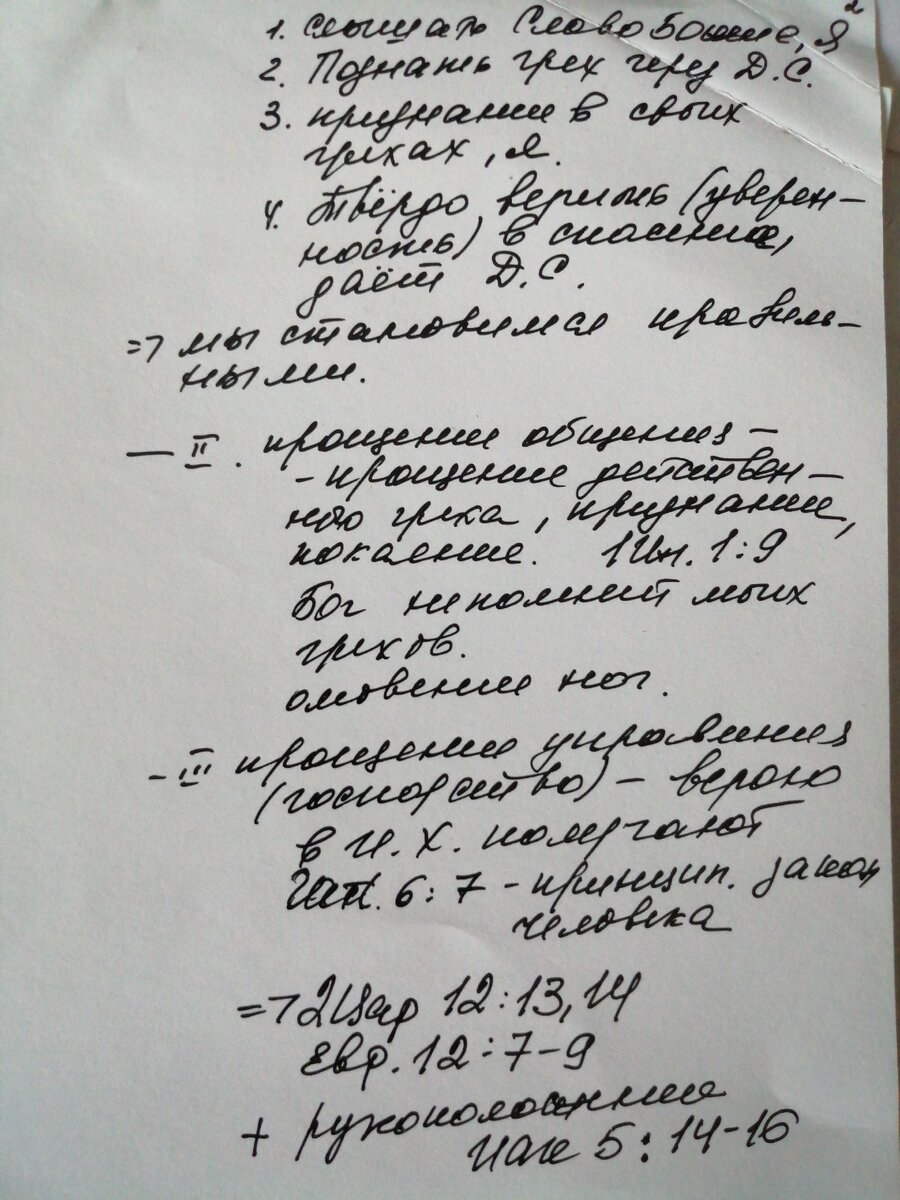 2
1. слышать Слово Божие, Я
2. Познать грех через Д.С.
3. признание в своих
грехах, я.
4. Твёрдо верить (уверен-
ность) в спасение,
даёт Д.С.
=> мы становимся правиль-
ными.
— II. прощение общения -
- прощение действен-
ного греха, признание,
покаяние. 1Ин. 1:9
Бог непомнит моих
грехов.
омовение ног.
- III прощение управления
(господство) - верою
в И.Х. получают
6:7 - принцип. закон
человека
=> 2Цар 12:13,14
Евр. 12:7-9
+ рукоположение
Иак 5:14-16